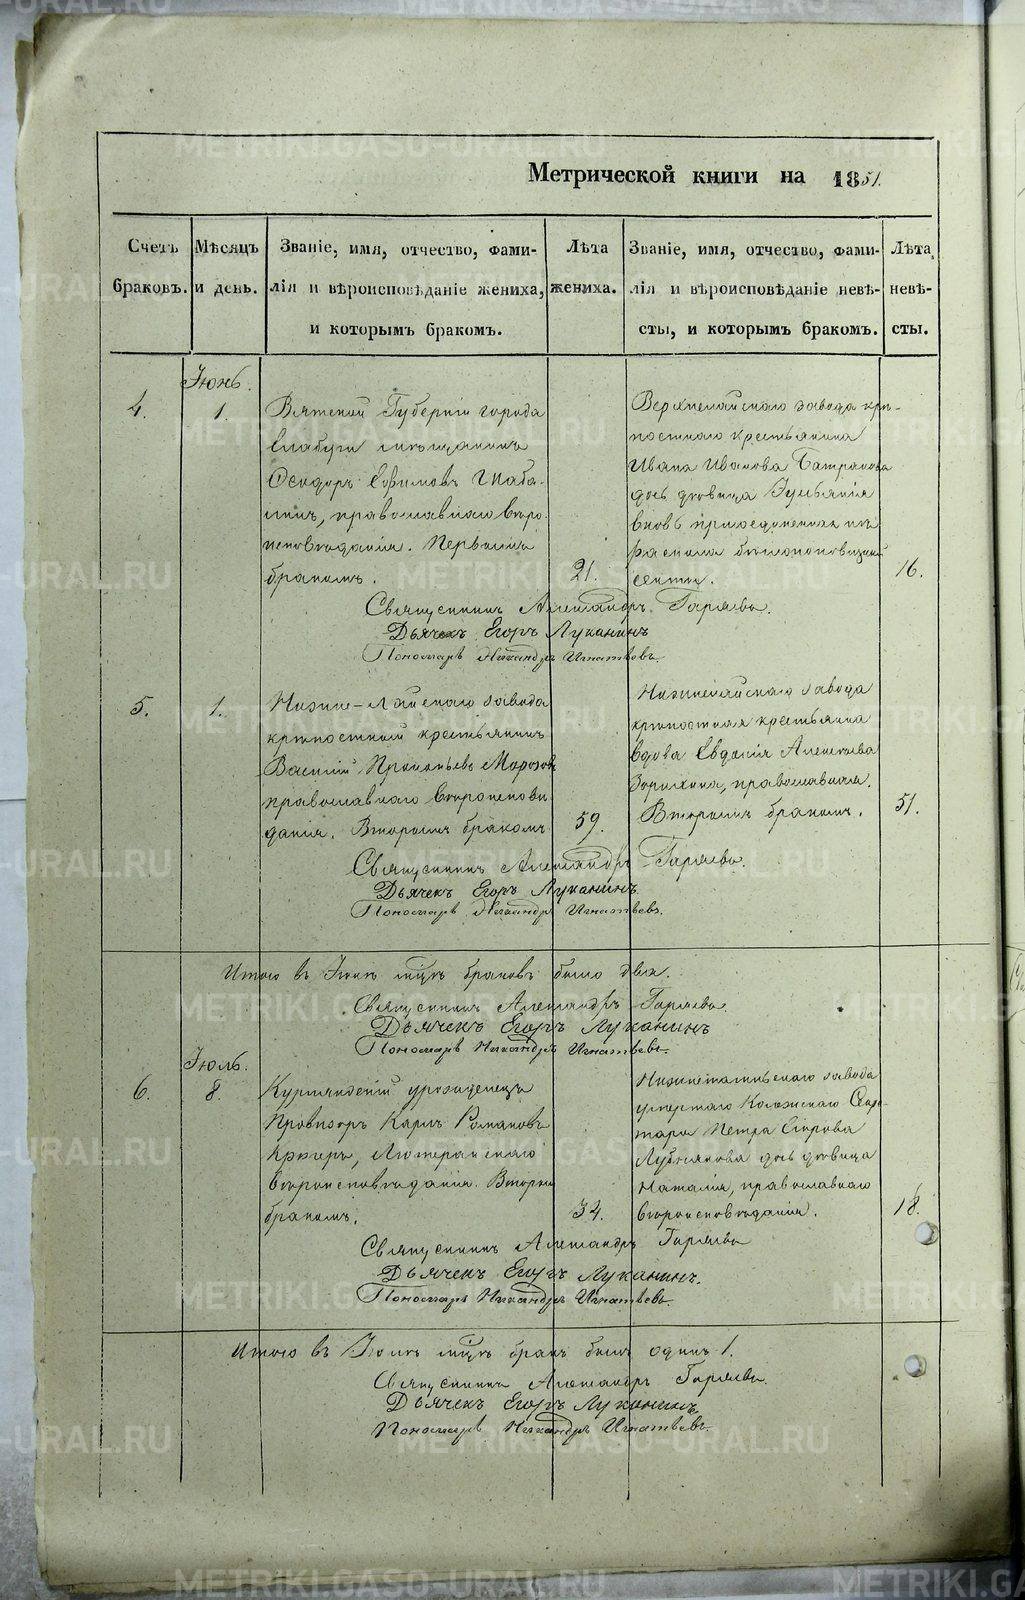 Метрической книги на 1851.
Счетъ браковъ.
Мѣсяцъ и день.
Званіе, имя, отчество, фами-
лія и вѣроисповѣданіе жениха,
и которымъ бракомъ.
Лѣта жениха.
Званіе, имя, отчество, фами-
лія и вѣроисповѣданіе невѣ-
сты, и которымъ бракомъ.
Лѣта невѣ-
сты.
Іюнь.
4.
1.
Вятской Губерніи города
Елабуги мѣщанинъ
Ѳеодоръ Ефимовъ
православнаго вѣро
исповѣданія. Первымъ
бракомъ.
21.
завода крѣ-
постнаго крестьянина
Ивана Иванова
дочь дѣвица
вновь присоединенная изъ
раскола
секты.
16.
Священникъ Александръ Гаряевъ.
Дьячекъ Егоръ Луканинъ
Пономарь Никандръ Игнатьевъ.
5.
1.
Нижне-Лайскаго завода
крѣпостный крестьянинъ
Василій Прокопьевъ Морозовъ
православнаго вѣроисповѣ
данія. Вторымъ бракомъ
59.
Нижнелайскаго завода
крѣпостная крестьянка
вдова Евдокія Алексѣева
православная.
Вторымъ бракомъ.
51.
Священникъ Александръ Гаряевъ.
Дьячекъ Егоръ Луканинъ.
Пономарь Никандръ Игнатьевъ.
Итого въ Іюнѣ мѣсяцѣ браковъ было два.
Священникъ Александръ Гаряевъ.
Дьячекъ Егоръ Луканинъ
Пономарь Никандръ Игнатьевъ.
Іюль.
6.
8.
Курляндскій уроженецъ
Провизоръ Карлъ Романовъ
Лютеранскаго
вѣроисповѣданія. Вторымъ
бракомъ.
34.
Нижнетагильскаго завода
умершаго Коллежскаго Секре-
таря Петра Егорова
дочь дѣвица
Наталія, православнаго
вѣроисповѣданія.
18.
Священникъ Александръ Гаряевъ
Дьячекъ Егоръ Луканинъ.
Пономарь Никандръ Игнатьевъ.
Итого въ Іюлѣ мѣсяцѣ бракъ былъ одинъ 1.
Священникъ Александръ Гаряевъ.
Дьячекъ Егоръ Луканинъ
Пономарь Никандръ Игнатьевъ.
METRIKI.GASO-URAL.RU